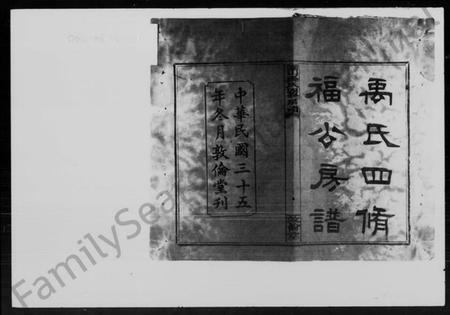 禹氏四脩
福公房譜
中華民國三十五
年冬月敦倫堂刊
FamilySea